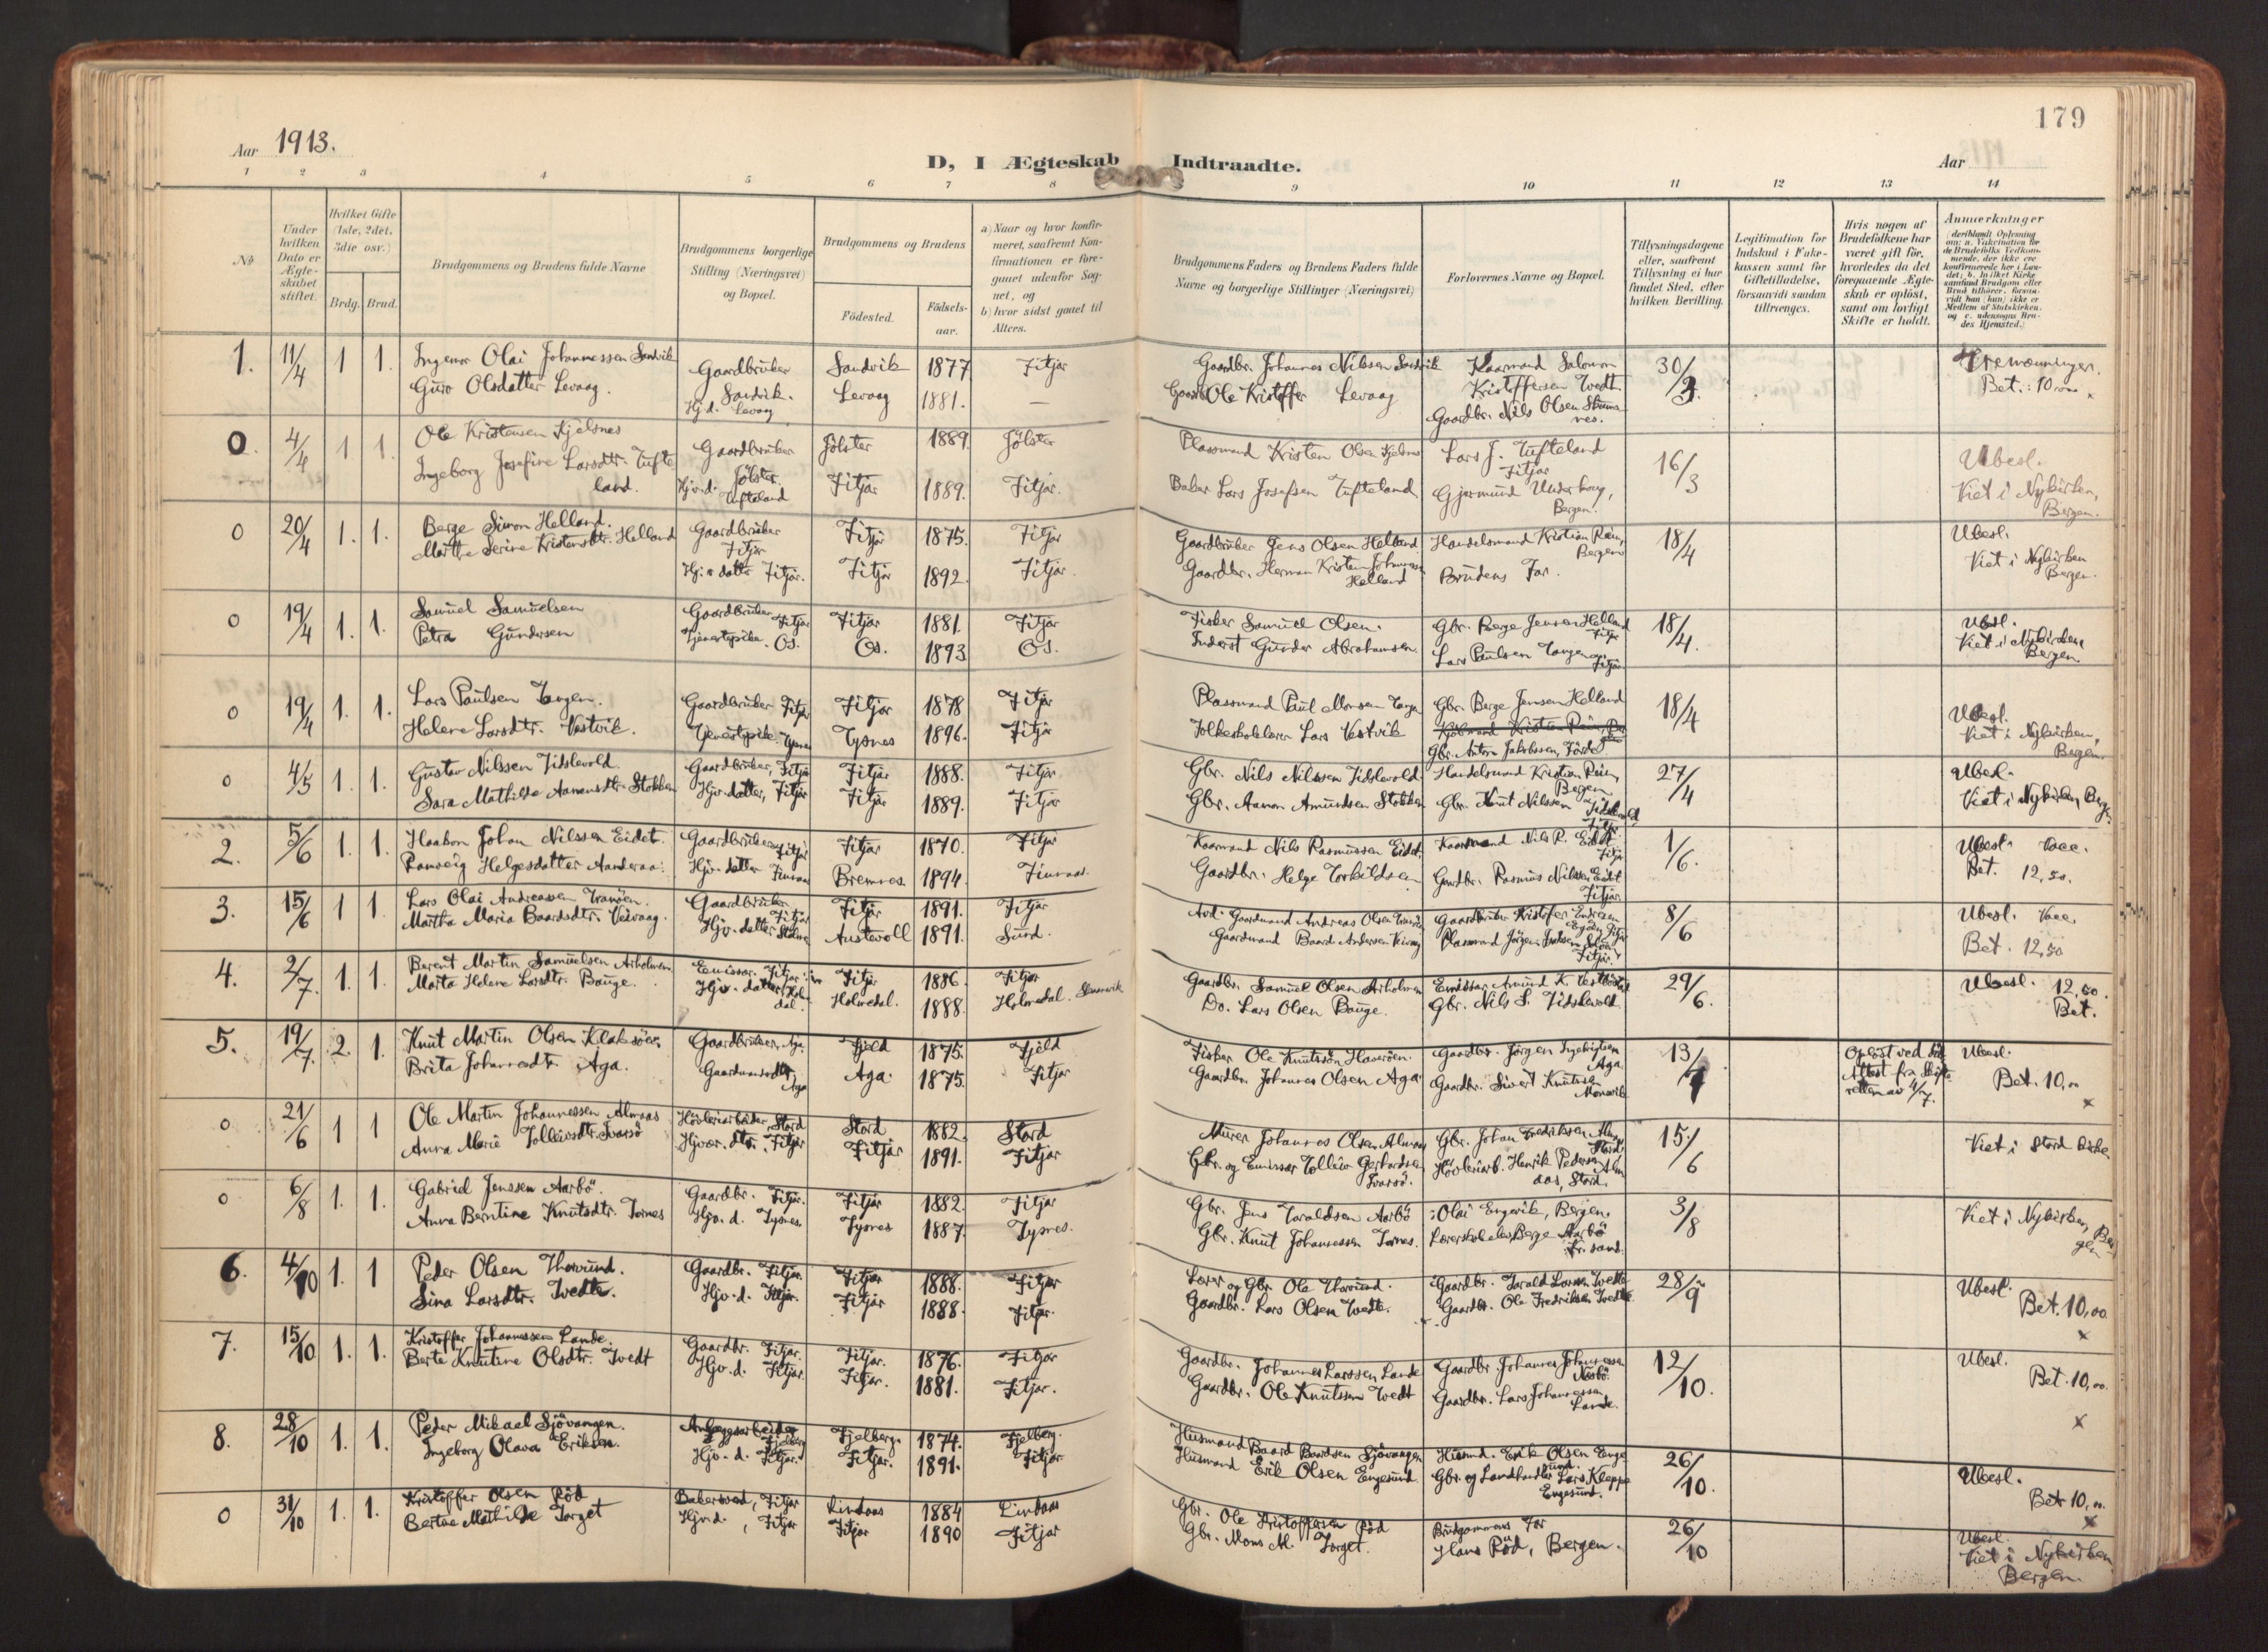 179
Aar 1913.
D, I Ægteskab Indtraadte.
Aar
1 2 3 4 5 6 7 8 9 10 11 12 13 14
No
Under hvilken Dato er Ægteskabet stiftet.
Hvilket Gifte (1ste, 2det, 3die osv.)
Brdg. Brud.
Brudgommens og Brudens fulde Navne
Brudgommens borgerlige Stilling (Næringsvei) og Bopæl.
Brudgommens og Brudens
Födested.
Födselsaar.
a) Naar og hvor konfirmeret, saafremt Konfirmationen er foregaaet udenfor Sognet, og
b) hvor sidst gaaet til Alters.
Brudgommens Faders og Brudens Faders fulde Navne og borgerlige Stillinger (Næringsvei)
Forlovernes Navne og Bopæl.
Tillysningsdagene eller, saafremt Tillysning ei har fundet Sted, efter hvilken Bevilling.
Legitimation for Indskud i Enkekassen samt for Giftetilladelse, forsaavidt saadan tiltrænges.
Hvis nogen af Brudefolkene har været gift för, hvorledes da det foregaaende Ægteskab er oplöst, samt om lovligt Skifte er holdt.
Anmærkninger
1. 11/4 1 1. Ingemar Olai Johannessen Sandvik Gaardbruker Sandvik. Sandvik 1877 Fitjar Gaardbr. Johannes Nilsen Sandvik Kaarmand Salomon Kristoffersen Tvedt. 30/3.
Guro Olsdatter Levaag. Hj.d. Levaag Levaag 1881. — Ole Kristoffer Levaag Gaardbr. Nils Olsen Bet.: 10
0. 4/4 1 1. Ole Kristensen Kjelsnes Gaardbruker Jölster. Jölster 1889. Jölster Plassmand Kristen Olsen Kjelsnes Lars J. Tufteland Fitjar 16/3 Ubesl.
Ingeborg Josefine Larsdtr. Tufteland. Hjv.d. Tufteland Fitjar 1889. Fitjar. Baker Lars Josefsen Tufteland. Gjermund Bergen. Viet i Nykirken, Bergen.
0 20/4 1. 1. Berge Simon Helland. Gaardbruker Fitjar Fitjar 1875. Fitjar Gaardbruker Jens Olsen Helland Handelsmand Kristian Bergen 18/4 Ubesl.
Marthe Serine Kristensdtr. Helland Hjv. datter Fitjar. Fitjar 1892. Fitjar. Gaardbr. Herman Kristen Johannessen Helland Brudens Far. Viet i Nykirken Bergen.
0 19/4 1. 1. Samuel Samuelsen Gaardbruker Fitjar Fitjar 1881. Fitjar Fisker Samuel Olsen. Gbr. Berge Jensen Helland Fitjar 18/4. Ubesl.
Petra Gundersen Tjenestepike. Os. Os. 1893 Os. Inderst Gunder Abrahamsen. Lars Paulsen Tangen Fitjar. Viet i Nykirken Bergen.
0 19/4 1. 1. Lars Paulsen Tangen. Gaardbruker Fitjar Fitjar 1878 Fitjar Plassmand Paul Monsen Tangen Gbr. Berge Jensen Helland 18/4 Ubesl.
Helene Larsdtr. Vestvik. Tjenestepike. Tysnes Tysnes 1896. Fitjar Folkeskolelærer Lars Vestvik Gbr. Anton Jakobsen, Viet i Nykirken, Bergen.
0 4/5 1. 1. Gustav Nilssen Tidslevold. Gaardbruker, Fitjar Fitjar 1888. Fitjar Gbr. Nils Nilssen Tidslevold. Handelsmand Kristian Bergen 27/4 Ubesl.
Sara Mathilde Aamundsdtr. Stokken Hjv. datter, Fitjar Fitjar 1889. Fitjar Gbr. Aamon Amundsen Stokken Gbr. Knut Nilssen Tidslevold, Fitjar. Viet i Nykirken, Bergen
2. 5/6 1. 1. Haakon Johan Nilssen Eidet. Gaardbruker Fitjar Fitjar 1870. Fitjar Kaarmand Nils Rasmussen Eidet. Kaarmand Nils R. Eidet Fitjar 1/6. Ubesl. Vacc.
Ranveig Helgesdatter Aanderaa. Hjv. datter Finnaas Bremnes 1894. Finnaas. Gaardbr. Helge Torkildsen Gaardbr. Rasmus Nilssen Eidet Fitjar. Bet. 12,50.
3. 15/6 1 1. Lars Olai Andreassen Tranöen. Gaardbruker Fitjar Fitjar 1891. Fitjar Gaardmand Andreas Olsen Gaardbruker Kristofer Fitjar 8/6 Ubesl. Vacc.
Martha Maria Baardsdtr. Veivaag. Hjv. datter Austevoll 1891. Sund. Gaardmand Baard Andersen Plassmand Jörgen Fitjar. Bet. 12,50
4. 2/7. 1. 1. Berent Martin Samuelsen Arholmen. Emissær. Fitjar Fitjar 1886. Fitjar Gaardbr. Samuel Olsen Arholmen Emissær Amund K. 29/6. Ubesl. 12,50.
Marta Helene Larsdtr. Bauge. Hjv. datter Holmedal. Holmedal. 1888. Holmedal. Do. Lars Olsen Bauge. Gbr. Nils S. Tidslevold. Bet.
5. 19/7. 2. 1. Knut Martin Olsen Klaksöen. Gaardbruker, Aga. Fjeld 1875. Fjeld Fisker Ole Knutssön Gaardbr. Jörgen Ingebrigtsen Aga. 13/7 Oplöst ved död. Attest fra Skifteretten av 4/7. Ubesl.
Brita Johannesdtr. Aga. Gaardmandsdtr. Aga Aga. 1875. Fitjar Gaardbr. Johannes Olsen Aga. Gaardbr. Sivert Knutssen Bet. 10,00 x
0 21/6 1 1 Ole Martin Johannessen Almaas Hövleriarbeider, Stord Stord 1882. Stord Murer Johannes Olsen Almaas Gbr. Johan Fredriksen Stord 15/6 Viet i Stord kirke.
Anna Marie Tolleivsdtr. Ivarsö Hjvær. dtr. Fitjar Fitjar 1891. Fitjar Gbr. og Emissær Tolleiv Gerhardsen Ivarsö. Hövleriarb. Henrik Pedersen Almaas, Stord.
0 6/8 1. 1. Gabriel Jenssen Aarbö. Gaardbr. Fitjar. Fitjar 1882. Fitjar Gbr. Jens Taraldsen Aarbö Olai Engevik, Bergen. 3/8 Viet i Nykirken, Bergen
Anna Berntine Knutsdtr. Tornes Hjv. d. Tysnes. Tysnes 1887. Tysnes. Gbr. Knut Johannessen Tornes. Lærerskoleelev Berge Aarbö Kr.sand.
6. 4/10 1. 1 Peder Olsen Thorsund. Gaardbr. Fitjar. Fitjar 1888. Fitjar Lærer og Gbr. Ole Thorsund. Gaardbr. Tarald Larsen Tvedte 28/9 Ubesl.
Sina Larsdtr. Tvedte. Hjv. d. Fitjar. Fitjar 1888. Fitjar. Gaardbr. Lars Olsen Tvedte. Gaardbr. Ole Fredriksen Tvedte Bet. 10,00. x
7. 15/10 1. 1. Kristoffer Johannessen Lande. Gaardbr. Fitjar. Fitjar. 1876. Fitjar Gaardbr. Johannes Larssen Lande Gaardbr. Johannes Johannessen Næsbö. 12/10. Ubesl.
Berte Knutine Olsdtr. Tvedt Hjv. d. Fitjar. Fitjar. 1881. Fitjar. Gaardbr. Ole Knutssen Tvedt Gaardbr. Lars Johannessen Lande. Bet. 10,00. x
8. 28/10 1. 1. Peder Mikael Sjövangen. Anlægsarbeider Fjelberg Fjelberg. 1874. Fjelberg. Husmand Baard Baardsen Sjövangen Husmd. Erik Olsen Engesund. 26/10. Ubesl.
Ingeborg Olava Eriksen. Hjv. d. Fitjar. Fitjar. 1891. Fitjar. Husmand Erik Olsen Engesund. Gbr. og Landhandler Lars Kleppe Engesund. Bet 10,00. x
0 31/10 1. 1. Kristoffer Olsen Röd Bakersvend, Fitjar Lindaas 1884 Lindaas Gbr. Ole Kristoffersen Röd Brudgommens Far 26/10 Ubesl.
Bertha Mathilde Torget Hjv.d., Fitjar Fitjar 1890 Fitjar Gbr. Mons M. Torget. Hans Röd, Bergen. Viet i Nykirken Bergen.